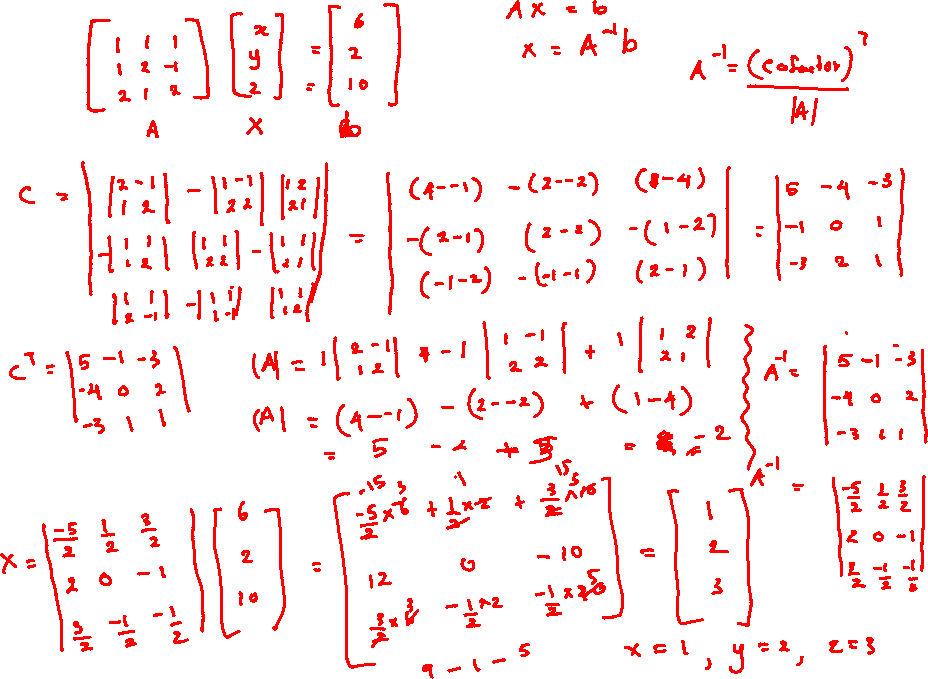 [1 1 1; 1 2 -1; 2 1 2] [x; y; z] = [6; 2; 10]
A X b
Ax = b
x = A⁻¹b
A⁻¹ = (cofactor)ᵀ / |A|
C = | |2 -1; 1 2| -|1 -1; 2 2| |1 2; 2 1| ; -|1 1; 1 2| |1 1; 2 2| -|1 1; 2 1| ; |1 1; 2 -1| -|1 1; 1 -1| |1 1; 1 2| |
= | (4--1) -(2--2) (1-4) ; -(2-1) (2-2) -(1-2) ; (-1-2) -(-1-1) (2-1) |
= | 5 -4 -3 ; -1 0 1 ; -3 2 1 |
Cᵀ = | 5 -1 -3 ; -4 0 2 ; -3 1 1 |
|A| = 1 |2 -1; 1 2| -1 |1 -1; 2 2| + 1 |1 2; 2 1|
|A| = (4--1) - (2--2) + (1-4)
= 5 - 4 + 3 = -2
A⁻¹ = | 5 -1 -3 ; -4 0 2 ; -3 1 1 |
A⁻¹ = | -5/2 1/2 3/2 ; 2 0 -1 ; 3/2 -1/2 -1/2 |
X = | -5/2 1/2 3/2 ; 2 0 -1 ; 3/2 -1/2 -1/2 | [6; 2; 10]
= [ -5/2×6 + 1/2×2 + 3/2×10 ; 12 0 -10 ; 3/2×6 -1/2×2 -1/2×20 ] = [1; 2; 3]
-15 3 1 15 5
3 5
9 - 1 - 5
x = 1, y = 2, z = 3